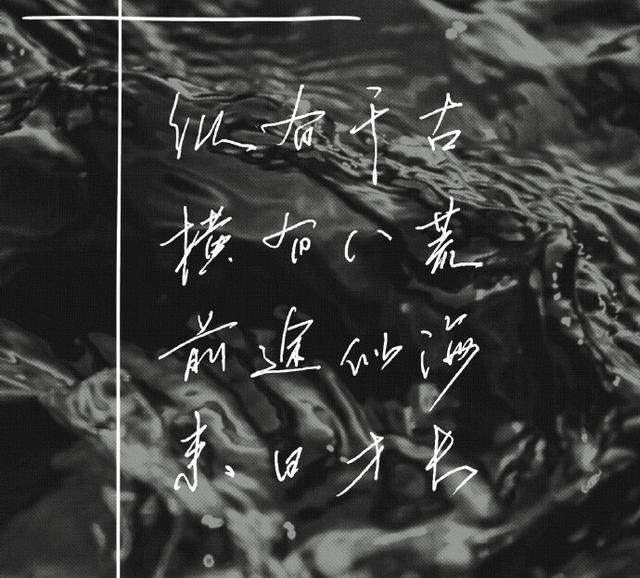 纵有千古
横有八荒
前途似海
来日方长